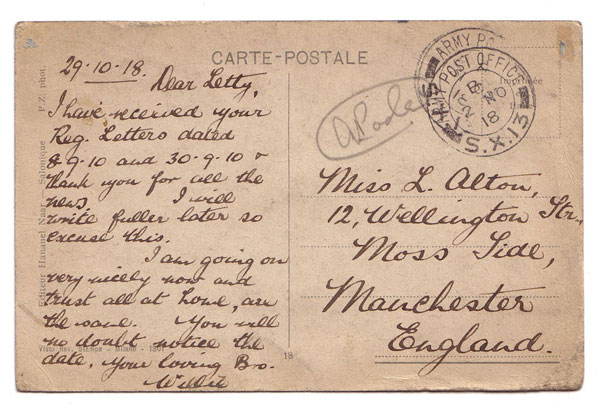 CARTE-POSTALE
29·10·18.
Dear Letty,
I have received your
Reg. Letters dated
8·9·10 and 30·9·10 &
thank you for all the
news. I will
write fuller later so
excuse this.
I am going on
very nicely now and
trust all at home, are
the same. You will
no doubt notice the
date, Your loving Bro.
Willie
ARMY POST OFFICE
S.X.13
18
Miss L. Alton,
12, Wellington Str.,
Moss Side,
Manchester
England.
P.Z. phot.
Editeur Hananel Naar - Salonique
18